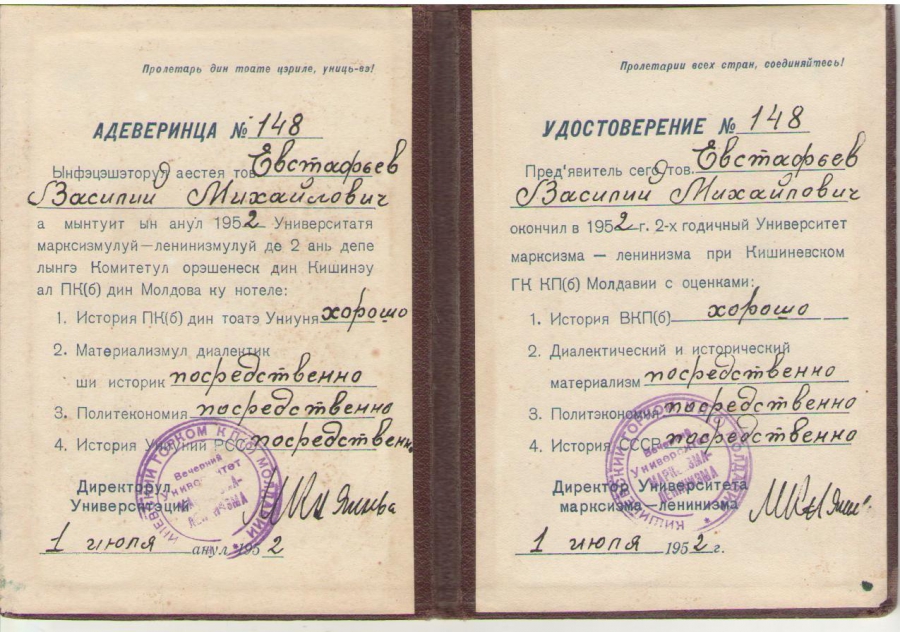 Пролетарь дин тоате цэриле, униць-вэ!
АДЕВЕРИНЦА № 148
Ынфэцэшэторул аестея тов. Евстафьев
Василий Михайлович
а мынтуит ын анул 1952 Университатя
марксизмулуй—ленинизмулуй де 2 ань депе
лынгэ Комитетул орэшенеск дин Кишинэу
ал ПК(б) дин Молдова ку нотеле:
1. История ПК(б) дин тоатэ Униуня хорошо
2. Материализмул диалектик
ши историк посредственно
3. Политекономия посредственно
4. История Униуний РССР посредственн
Директорул
Университэций
1 июля анул 1952
КИШИНЕВСКИЙ ГОРКОМ КП МОЛДАВИИ
Вечерний
Университет
МАРКСИЗМА-
ЛЕНИНИЗМА
Пролетарии всех стран, соединяйтесь!
УДОСТОВЕРЕНИЕ № 148
Пред'явитель сего тов. Евстафьев
Василий Михайлович
окончил в 1952 г. 2-х годичный Университет
марксизма — ленинизма при Кишиневском
ГК КП(б) Молдавии с оценками:
1. История ВКП(б) хорошо
2. Диалектический и исторический
материализм посредственно
3. Политэкономия посредственно
4. История СССР посредственно
Директор Университета
марксизма—ленинизма
1 июля 1952 г.
КИШИНЕВСКИЙ ГОРКОМ КП МОЛДАВИИ
Вечерний
Университет
МАРКСИЗМА-
ЛЕНИНИЗМА